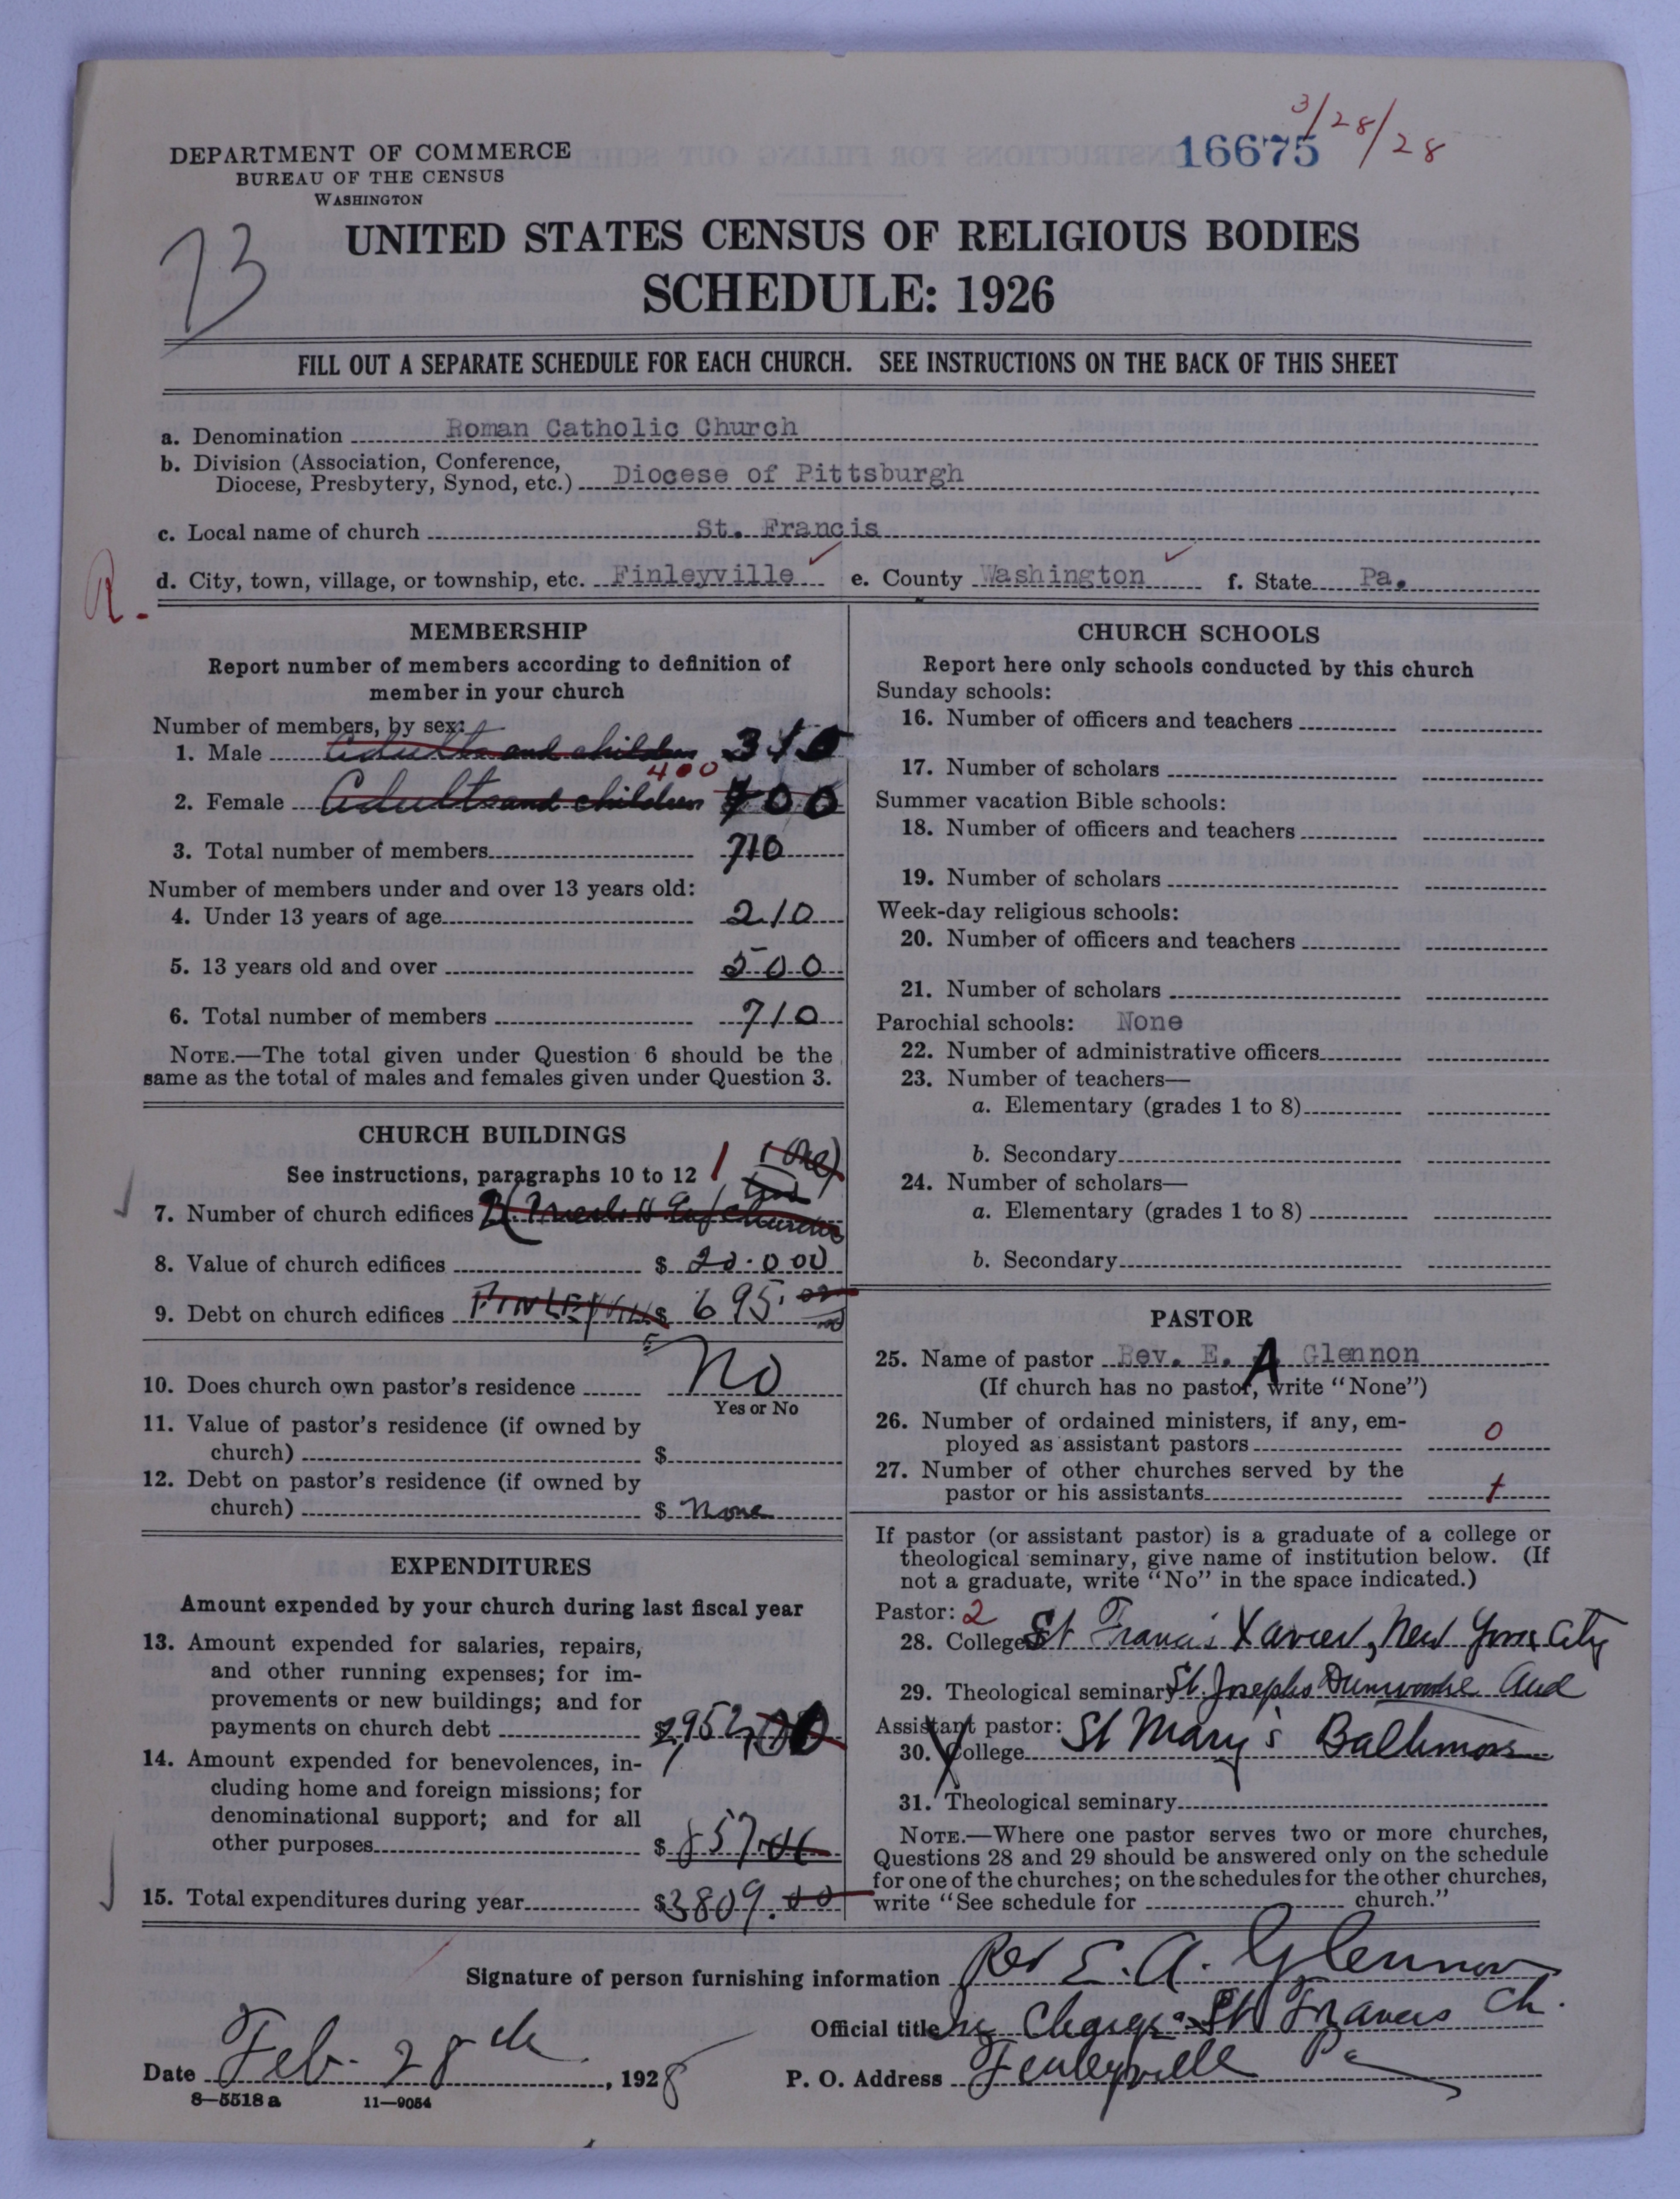 3/28/28
16675
DEPARTMENT OF COMMERCE
BUREAU OF THE CENSUS
WASHINGTON
73
UNITED STATES CENSUS OF RELIGIOUS BODIES
SCHEDULE: 1926
FILL OUT A SEPARATE SCHEDULE FOR EACH CHURCH. SEE INSTRUCTIONS ON THE BACK OF THIS SHEET
a. Denomination Roman Catholic Church
b. Division (Association, Conference,
Diocese, Presbytery, Synod, etc.) Diocese of Pittsburgh
c. Local name of church St. Francis
R.
d. City, town, village, or township, etc. Finleyville e. County Washington f. State Pa.
MEMBERSHIP
Report number of members according to definition of
member in your church
Number of members, by sex:
1. Male Adults and children 310
400
2. Female Adults and children 400
3. Total number of members 710
Number of members under and over 13 years old:
4. Under 13 years of age 210
5. 13 years old and over 500
6. Total number of members 710
NOTE.—The total given under Question 6 should be the
same as the total of males and females given under Question 3.
CHURCH BUILDINGS
1 (One)
See instructions, paragraphs 10 to 12
7. Number of church edifices
8. Value of church edifices $ 20.000
9. Debt on church edifices FINLEYVILLE $ 695.00
10. Does church own pastor's residence No
Yes or No
11. Value of pastor's residence (if owned by
church) $
12. Debt on pastor's residence (if owned by
church) $ None
EXPENDITURES
Amount expended by your church during last fiscal year
13. Amount expended for salaries, repairs,
and other running expenses; for im-
provements or new buildings; and for
payments on church debt $2,952,00
14. Amount expended for benevolences, in-
cluding home and foreign missions; for
denominational support; and for all
other purposes $ 857
15. Total expenditures during year $3809.00
CHURCH SCHOOLS
Report here only schools conducted by this church
Sunday schools:
16. Number of officers and teachers
17. Number of scholars
Summer vacation Bible schools:
18. Number of officers and teachers
19. Number of scholars
Week-day religious schools:
20. Number of officers and teachers
21. Number of scholars
Parochial schools: None
22. Number of administrative officers
23. Number of teachers—
a. Elementary (grades 1 to 8)
b. Secondary
24. Number of scholars—
a. Elementary (grades 1 to 8)
b. Secondary
PASTOR
25. Name of pastor Rev. E. A Glennon
(If church has no pastor, write "None")
26. Number of ordained ministers, if any, em-
ployed as assistant pastors 0
27. Number of other churches served by the
pastor or his assistants 1
If pastor (or assistant pastor) is a graduate of a college or
theological seminary, give name of institution below. (If
not a graduate, write "No" in the space indicated.)
Pastor: 2
28. College St Francis Xavier, New York City
29. Theological seminary St. Josephs Dunwoodie and
Assistant pastor: St Mary's Baltimore
30. College
31. Theological seminary
NOTE.—Where one pastor serves two or more churches,
Questions 28 and 29 should be answered only on the schedule
for one of the churches; on the schedules for the other churches,
write "See schedule for church."
Signature of person furnishing information Rev E. A. Glennon
Official title In Charge St Francis Ch.
Date Feb. 28th, 1928 P. O. Address Finleyville Pa
8—5518 a 11—9054